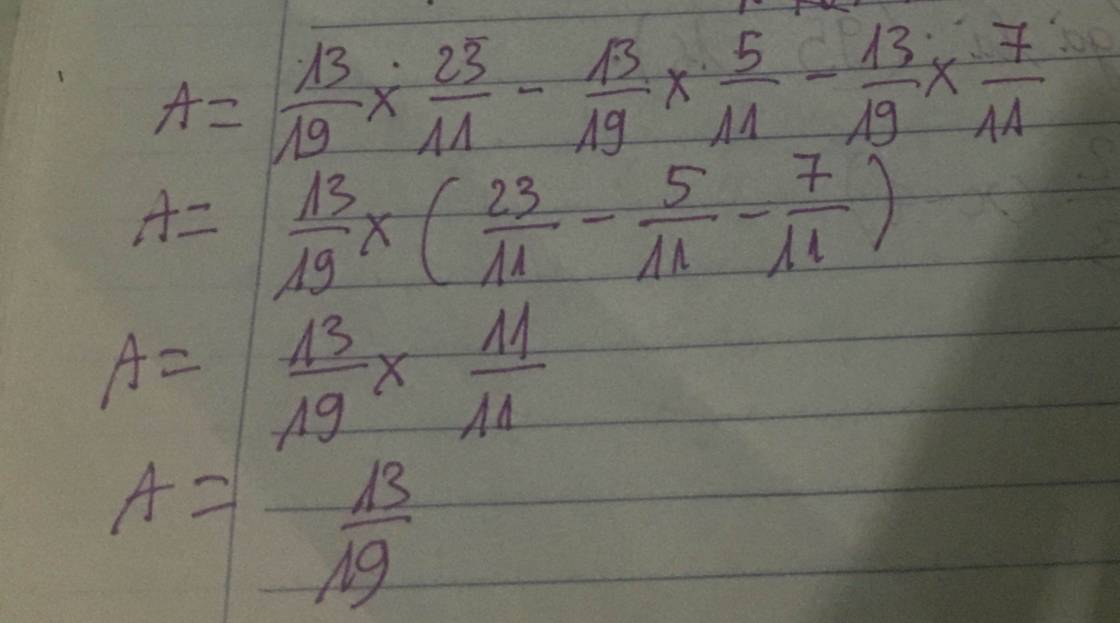 A = 13/19 × 23/11 - 13/19 × 5/11 - 13/19 × 7/11
A = 13/19 × ( 23/11 - 5/11 - 7/11 )
A = 13/19 × 11/11
A = 13/19